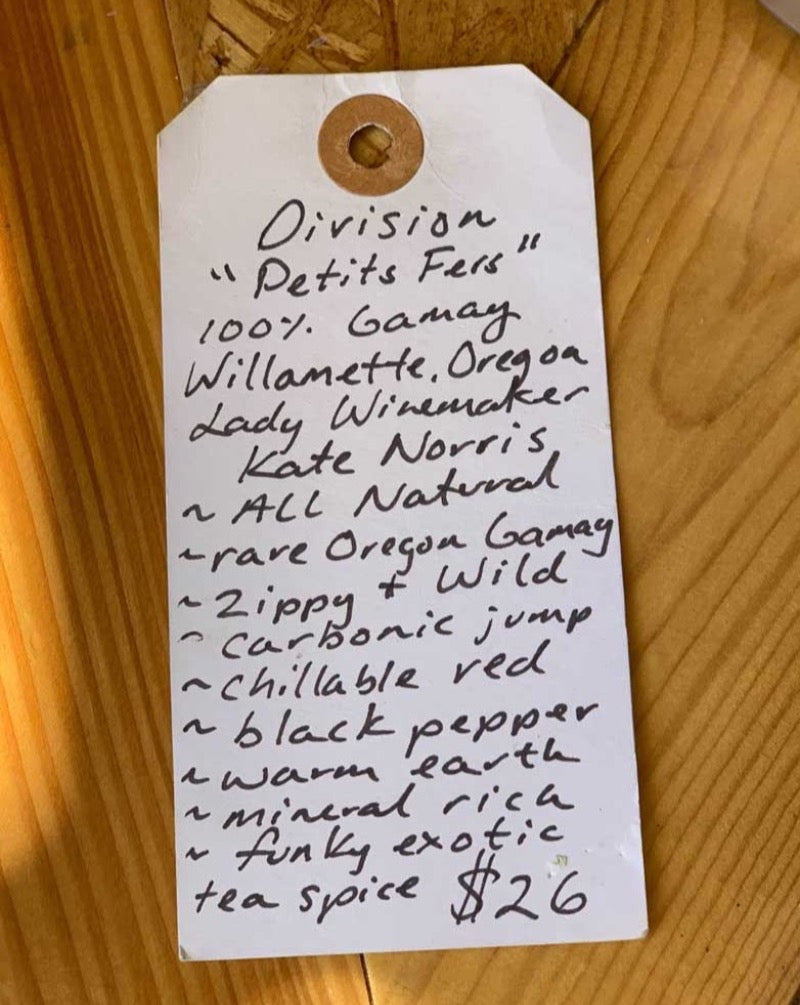 Division
"Petits Fers"
100% Gamay
Willamette, Oregon
Lady Winemaker
Kate Norris
~ ALL Natural
~ rare Oregon Gamay
~ Zippy + Wild
~ carbonic jump
~ chillable red
~ black pepper
~ warm earth
~ mineral rich
~ funky exotic
tea spice $26